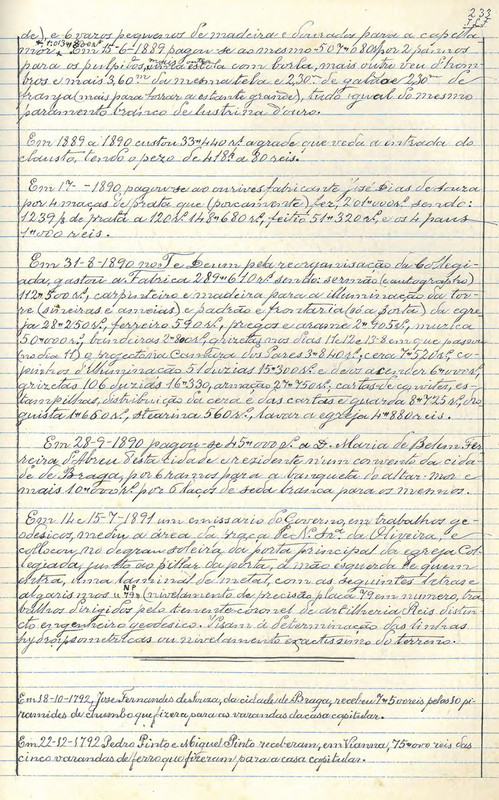 233
de), e 6 varos pequenos de madeira e dourados para a capella
mor. Em 15-6-1889 pagou-se ao mesmo 507$080 por 2 pannos
para os pulpitos, estola com borla, mais outro veu d'hom-
bros e mais 3,60m da mesma tela e 2,30m de galão e 2,30m de
franja (mais para forrar a estante grande), tudo igual do mesmo
paramento branco de lustrina d'ouro.
Em 1889 a 1890 custou 33$440 rs. a grade que veda a entrada do
claustro, tendo o pezo de 418k a 80 reis.
Em 17- -1890, pagou-se ao ourives fabricante José Dias de Souza
por 4 maças de prata que (porcamente) fez, 201$000 rs. sendo:
1239 g. de prata a 120 rs. 148$680 rs., feitio 51$320 rs., e os 4 paus
1$000 reis.
Em 31-8-1890 no Te Deum pela reorganisação da Collegi-
ada, gastou a Fabrica 289$610 rs. sendo: sermão (e autographo)
112$500 rs., carpinteiro e madeira para a illuminação da tor-
re (sineiras e ameias) e padrão e frontaria (só a porta) da egre-
ja 28$250 rs., ferreiro 590 rs., pregos e arame 2$905 rs., musica
50$000 rs., bandeiras 2$800 rs., grizetas nos dias 11 e 12 e 13 em que passou
(no dia 11) o trajectoria Camara dos Pares 3$840 rs., cera 7$520 rs., co-
pinhos d'illuminação 51 duzias 15$300 rs. e de os accender 6$000 rs.,
grizetas 106 duzias 16$330, armação 27$750 rs., cartas de convites, es-
tampilhas, distribuição da cera e das cartas e guarda 8$725 rs.,
quista 1$660 rs., stearina 560 rs., lavar a egreja 4$880 reis.
Em 28-9-1890 pagou-se 45$000 rs. a D. Maria de Belem Fer-
reira d'Abreu d'esta cidade e residente n'um convento da cida-
de de Braga, por 6 ramos para a banqueta do altar-mor e
mais 10$000 rs. por 6 laços de seda branca para os mesmos.
Em 14 e 15-7-1891 um emissario do Governo, em trabalhos ge-
odesicos, mediu a área da praça de N. Sra. da Oliveira, e
collocou no degrau soleira da porta principal da egreja Col-
legiada, junto ao pillar da porta, á mão esquerda de quem
entra, uma laminal de metal, com as seguintes letras e
algarismos N P 79 (nivelamento de precisão placa 79 em numero, tra-
balhos dirigidos pelo tenente-coronel de artilheria Reis distin-
cto engenheiro geodesico. Visam á determinação das linhas
hydroipsometricas ou nivelamento exactissimo do terreno.
Em 18-10-1792, José Fernandes de Souza, da cidade de Braga, recebeu 7$500 reis pelas 10 pi-
ramides de chumbo que fizera, para as varandas da casa capitular.
Em 22-12-1792 Pedro Pinto e Miguel Pinto receberam, em Vianna, 75$000 reis das
cinco varandas de ferro que fizeram para a casa capitular.